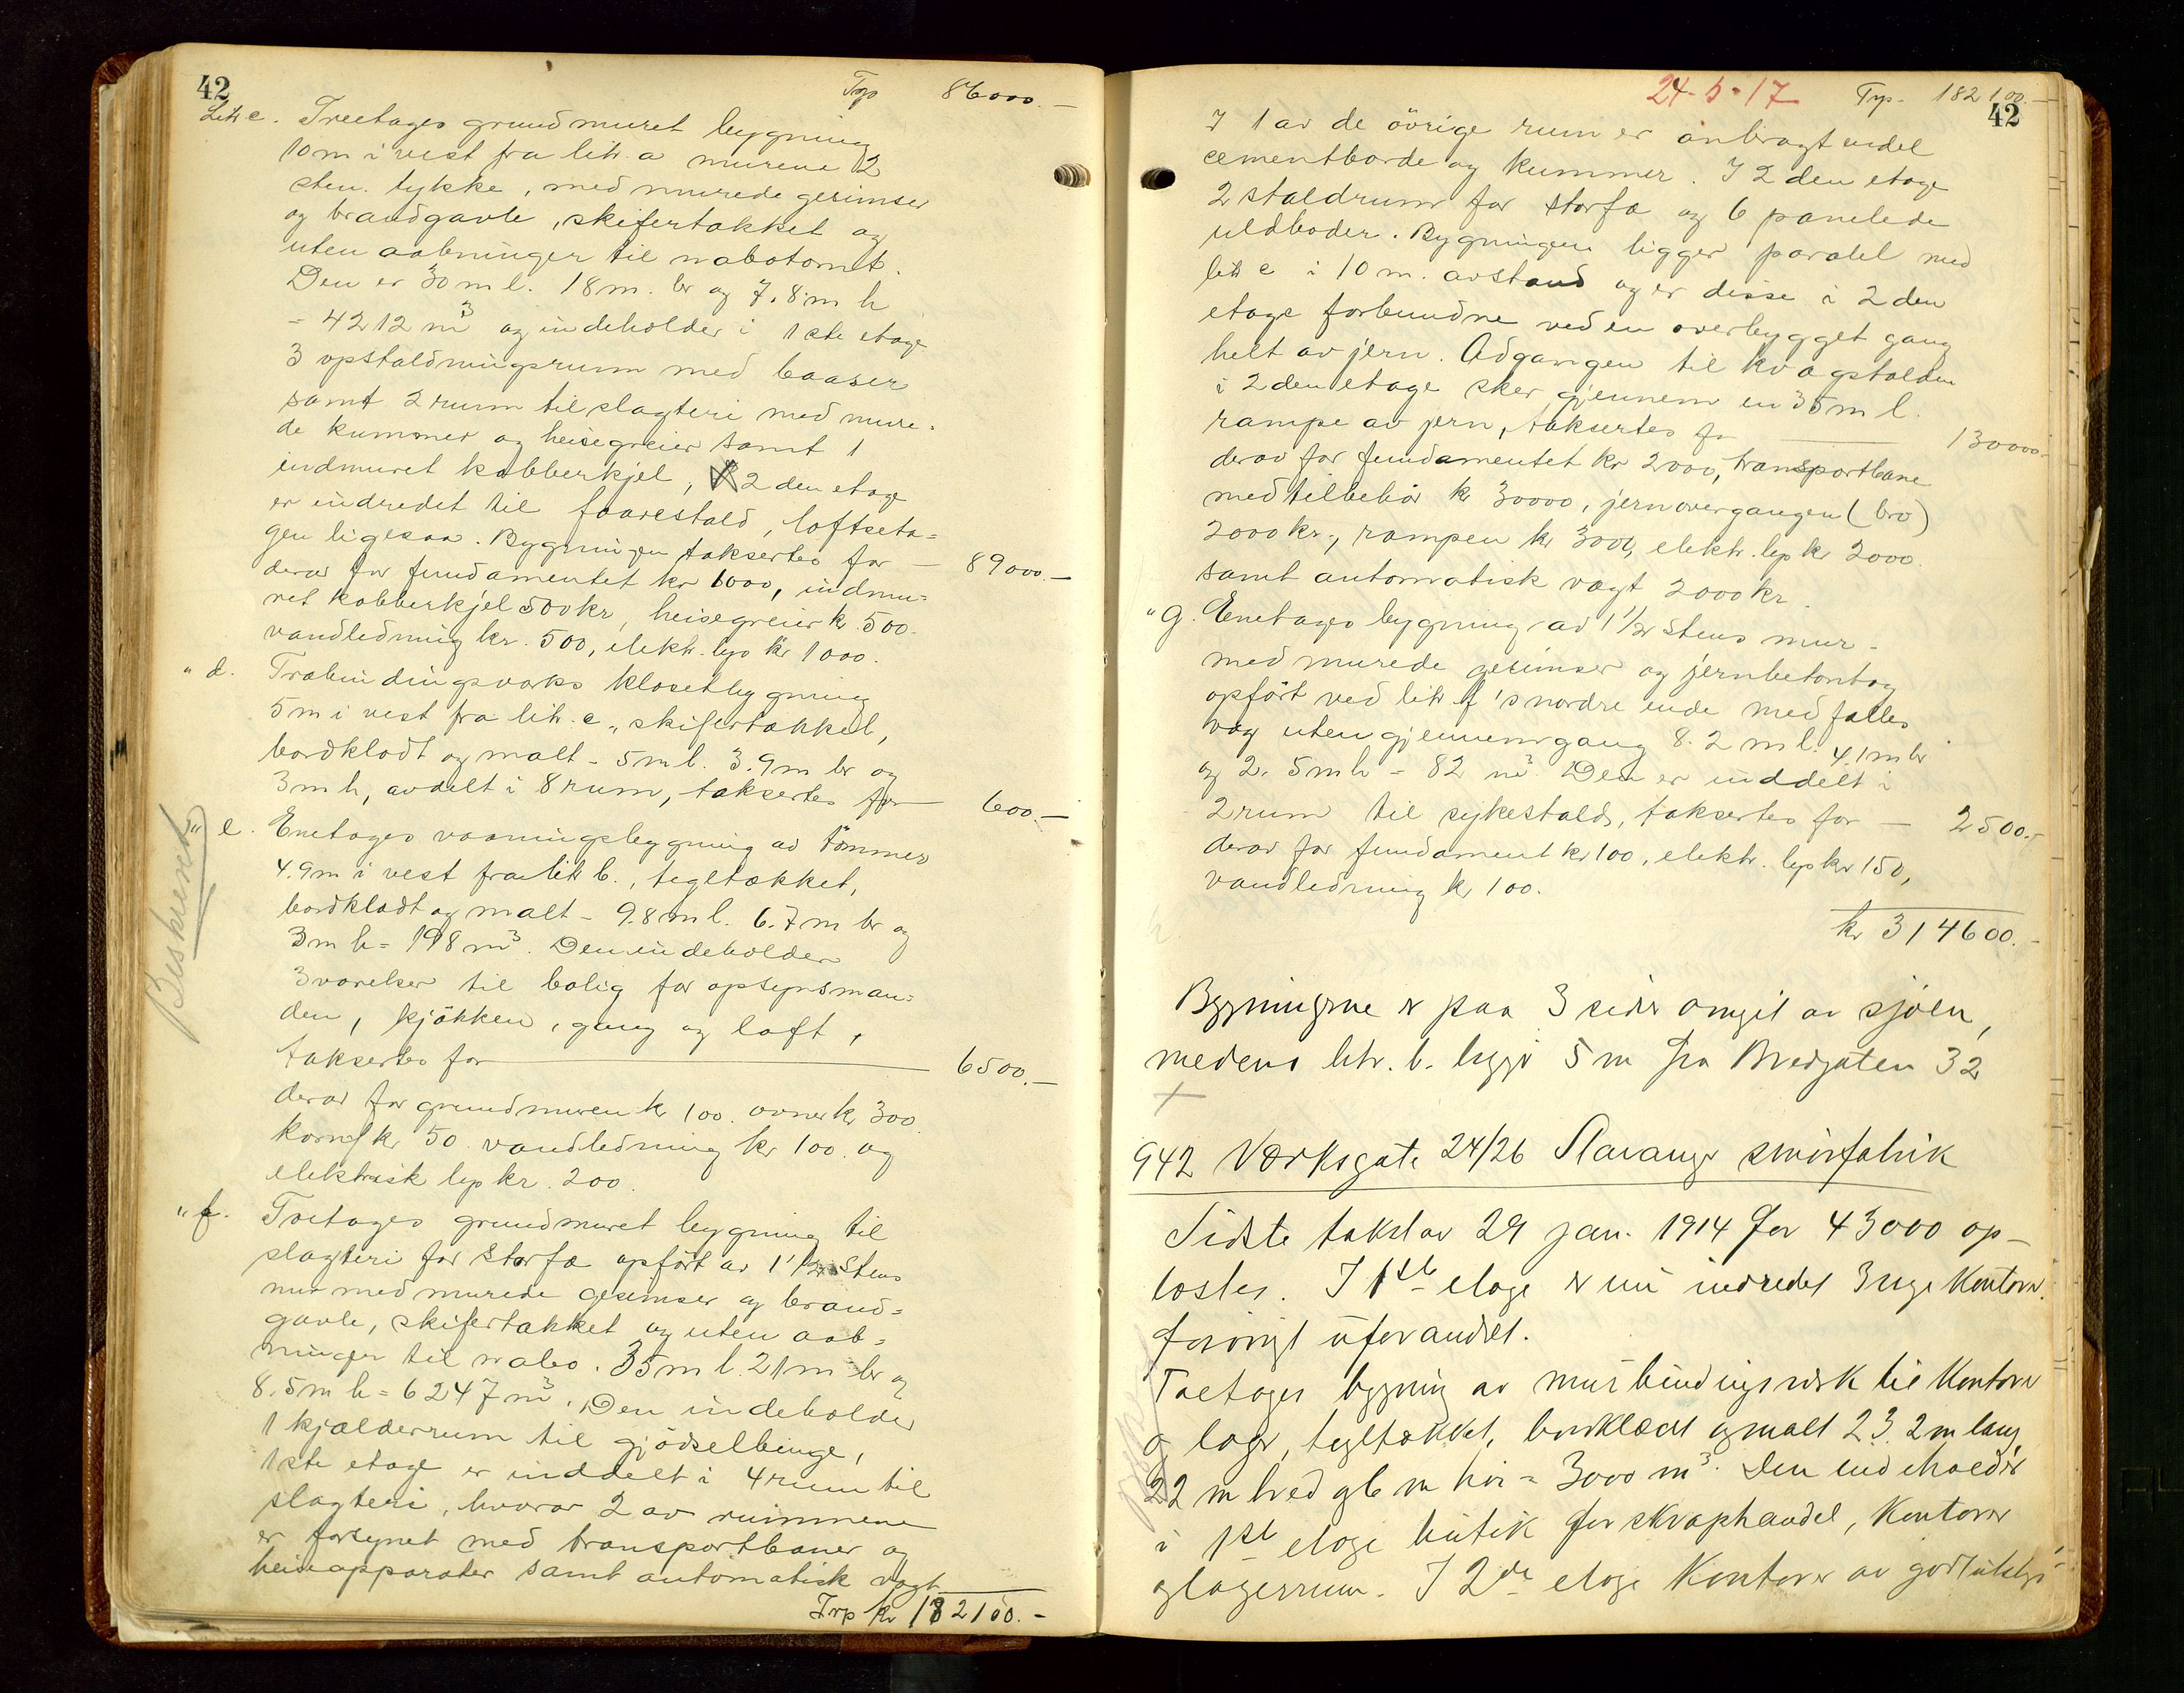 42
Trp 86000.-
Litr c. Treetages grundmuret bygning
10 m i vest fra litr. a murene 2
sten. tykke, med murede gesimser
og brandgavle, skifertækket og
uten aabninger til nabotomt.
Den er 30 m l. 18 m. br og 7.8 m h
= 4212 m3 og indeholder i 1ste etage
3 opstaldningsrum med baaser
samt 2 rum til slagteri med mure-
de kummer og heisegreier samt 1
indmuret kobberkjel, 2den etage
er indredet til faarestald, loftseta-
gen ligesaa. Bygningen takseres for - 89000.-
derav for fundamentet kr 1000, indmu-
ret kobberkjel 500 kr, heisegreier kr. 500.
vandledning kr. 500, elektr. lys kr 1000.
" d. Træbindingsværks klosetbygning
5 m i vest fra litr. c, skifertækket,
bordklædt og malt - 5 m l. 3.9 m br og
3 m h, avdelt i 8 rum, takseres for 600.-
" e. Enetages vaaningsbygning av tømmer
4.9 m i vest fra litr b., tegltækket,
bordklædt og malt - 9.8 m l. 6.7 m br og
3 m h = 198 m3. Den indeholder
3 værelser til bolig for opsynsman-
den, kjøkken, gang og loft,
takseres for 6500.-
derav for grundmuren kr 100. ovner kr 300.
komf kr 50. vandledning kr 100. og
elektrisk lys kr. 200.
Beskrevet
" f. Toetages grundmuret bygning til
slagteri for storfæ opført av 1 1/2 stens
mur med murede gesimser og brand-
gavle, skifertækket og uten aab-
ninger til nabo. 35 m l. 21 m br og
8.5 m h = 6247 m3. Den indeholder
1 kjælderrum til gjødselbinge,
1ste etage er inddelt i 4 rum til
slagteri, hvorav 2 av rummene
er forsynet med transportbaner og
heiseapparater samt automatisk vægt
Trp kr 182100.-
24-5-17 Trp. 182100.-
42
I 1 av de øvrige rum er anbragt endel
cementborde og kummer. I 2den etage
2 staldrum for storfæ og 6 panelede
uldboder. Bygningen ligger paralel med
litr c i 10 m. avstand og er disse i 2den
etage forbundne ved en overbygget gang
helt av jern. Adgangen til kvægstalden
i 2den etage sker gjennem en 35 m l.
rampe av jern, takseres for 130000.-
derav for fundamentet kr 2000, transportbane
med tilbehør kr 30000, jernovergangen (bro)
2000 kr., rampen kr 3000, elektr. lys kr 2000.
samt automatisk vægt 2000 kr.
" g. Enetages bygning av 1 1/2 stens mur-
med murede gesimser og jernbetontag
opført ved litr f's nordre ende med fælles
væg uten gjennemgang 8.2 m l. 4.1 m br
og 2.5 m h = 82 m3. Den er inddelt i
2 rum til sykestald, takseres for - 2500.-
derav for fundament kr 100, elektr. lys kr 150,
vandledning kr 100.
kr 314600.-
Bygningene er paa 3 sider omgit av sjøen,
medens litr. b. ligger 5 m fra Bredgaten 32
942 Verksgate 24/26 Stavanger smørfabrik
Sidste takst av 29 jan. 1914 for 43000 op-
læstes. I 1ste etage er nu indredet 3 nye kontorer.
forøvrigt uforandret.
Toetages bygning av murbindingsverk til kontorer
og lager, tegltækket, bordklædt og malt 23.2 m lang
22 m bred og 6 m høi = 3000 m3. Den indeholder
i 1ste etage butik for skraphandel, kontorer
og lagerrum. I 2de etage kontorer av